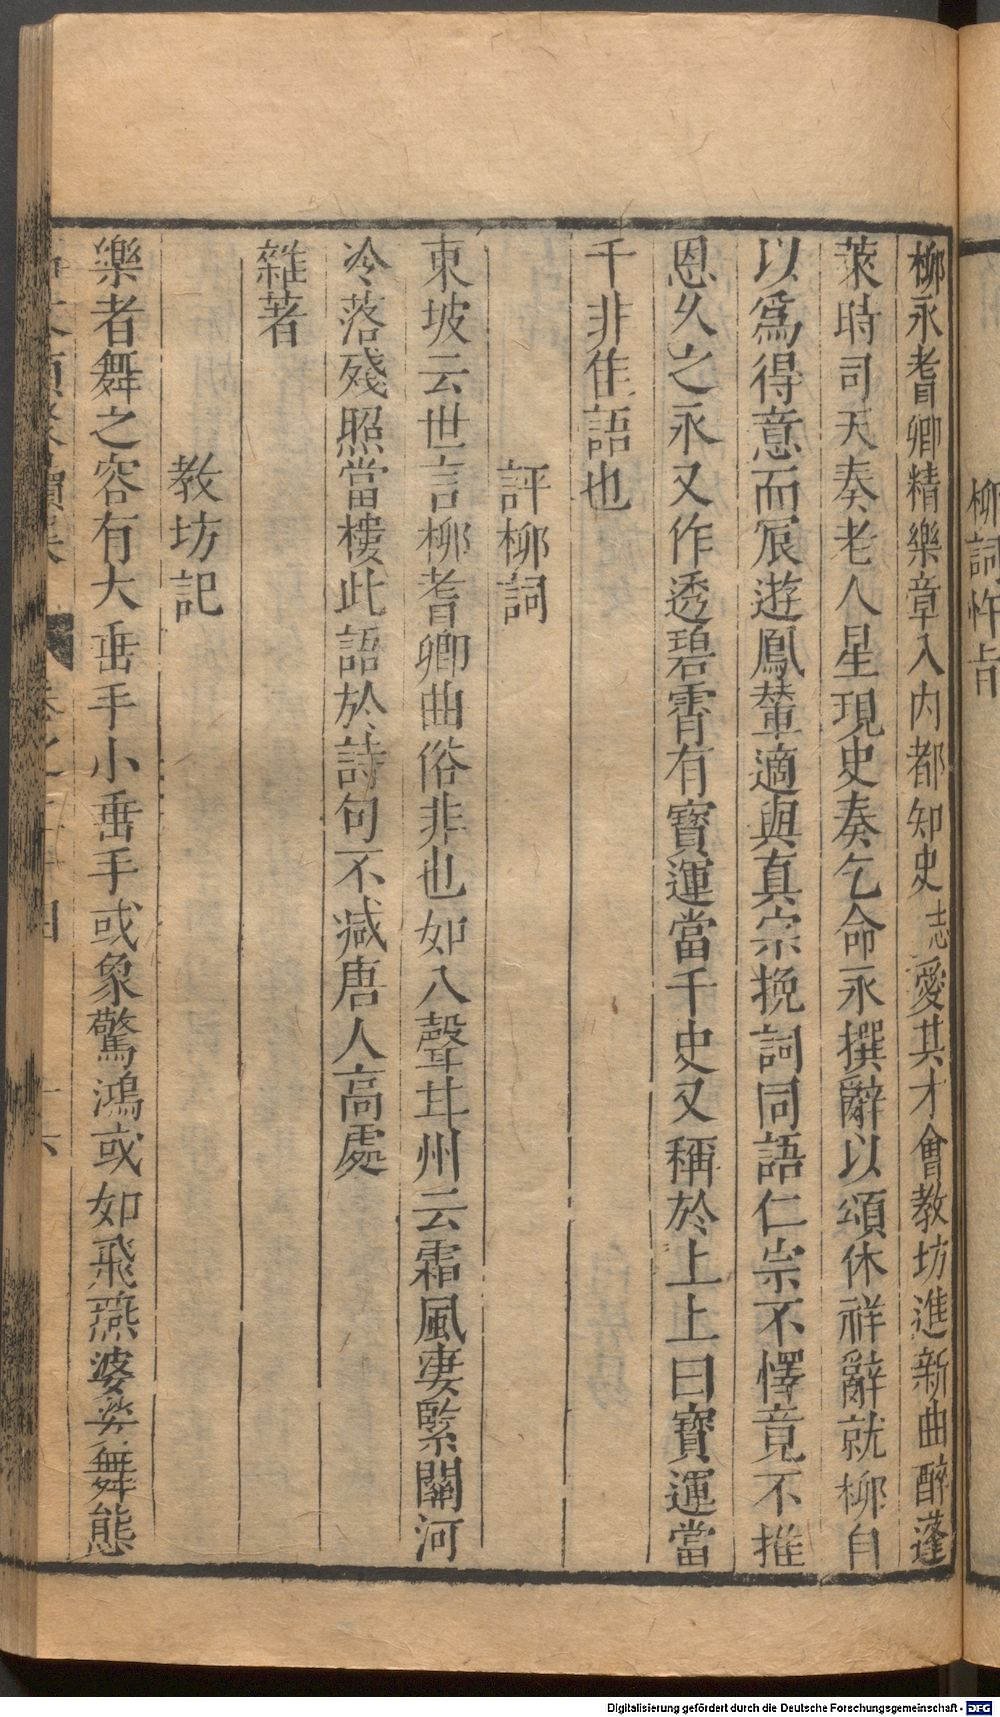 柳詞忤旨
柳永耆卿精樂章入内都知史志愛其才會教坊進新曲醉蓬
萊時司天奏老人星現史奏乞命永撰辭以頌休祥辭就柳自
以爲得意而宸遊鳳輦適與真宗挽詞同語仁宗不懌竟不推
恩久之永又作透碧霄有寶運當千史又稱於上上曰寶運當
千非佳語也
評柳詞
東坡云世言柳耆卿曲俗非也如八聲甘州云霜風凄緊關河
冷落殘照當樓此語於詩句不减唐人高處
雜著
教坊記
樂者舞之容有大垂手小垂手或象驚鴻或如飛燕婆娑舞態
卷之
十六
Digitalisierung gefördert durch die Deutsche Forschungsgemeinschaft - DFG